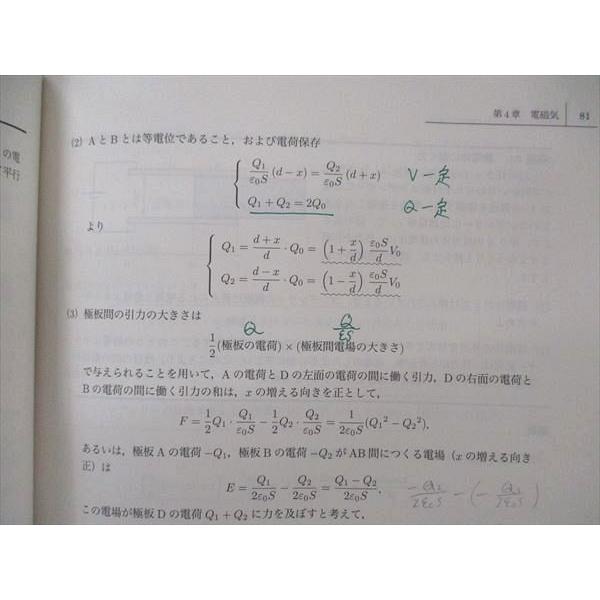 第4章 電磁気 81
の電
て平行
(2) AとBとは等電位であること,および電荷保存
Q₁/ε₀S (d−x) = Q₂/ε₀S (d+x) V一定
Q₁+Q₂=2Q₀ Q一定
より
Q₁ = (d+x)/d · Q₀ = (1+x/d) ε₀S/d V₀
Q₂ = (d−x)/d · Q₀ = (1−x/d) ε₀S/d V₀
(3) 極板間の引力の大きさは
Q Q/εS
1/2 (極板の電荷)×(極板間電場の大きさ)
で与えられることを用いて,Aの電荷とDの左面の電荷の間に働く引力,Dの右面の電荷と
Bの電荷の間に働く引力の和は,xの増える向きを正として,
F = 1/2 Q₁ · Q₁/ε₀S − 1/2 Q₂ · Q₂/ε₀S = 1/2ε₀S (Q₁² − Q₂²),
あるいは,極板Aの電荷 −Q₁,極板Bの電荷 −Q₂ がAB間につくる電場(xの増える向き
正)は
E = Q₁/2ε₀S − Q₂/2ε₀S = (Q₁−Q₂)/2ε₀S, −Q₂/2ε₀S − (− Q₁/2ε₀S)
この電場が極板Dの電荷 Q₁+Q₂ に力を及ぼすと考えて,